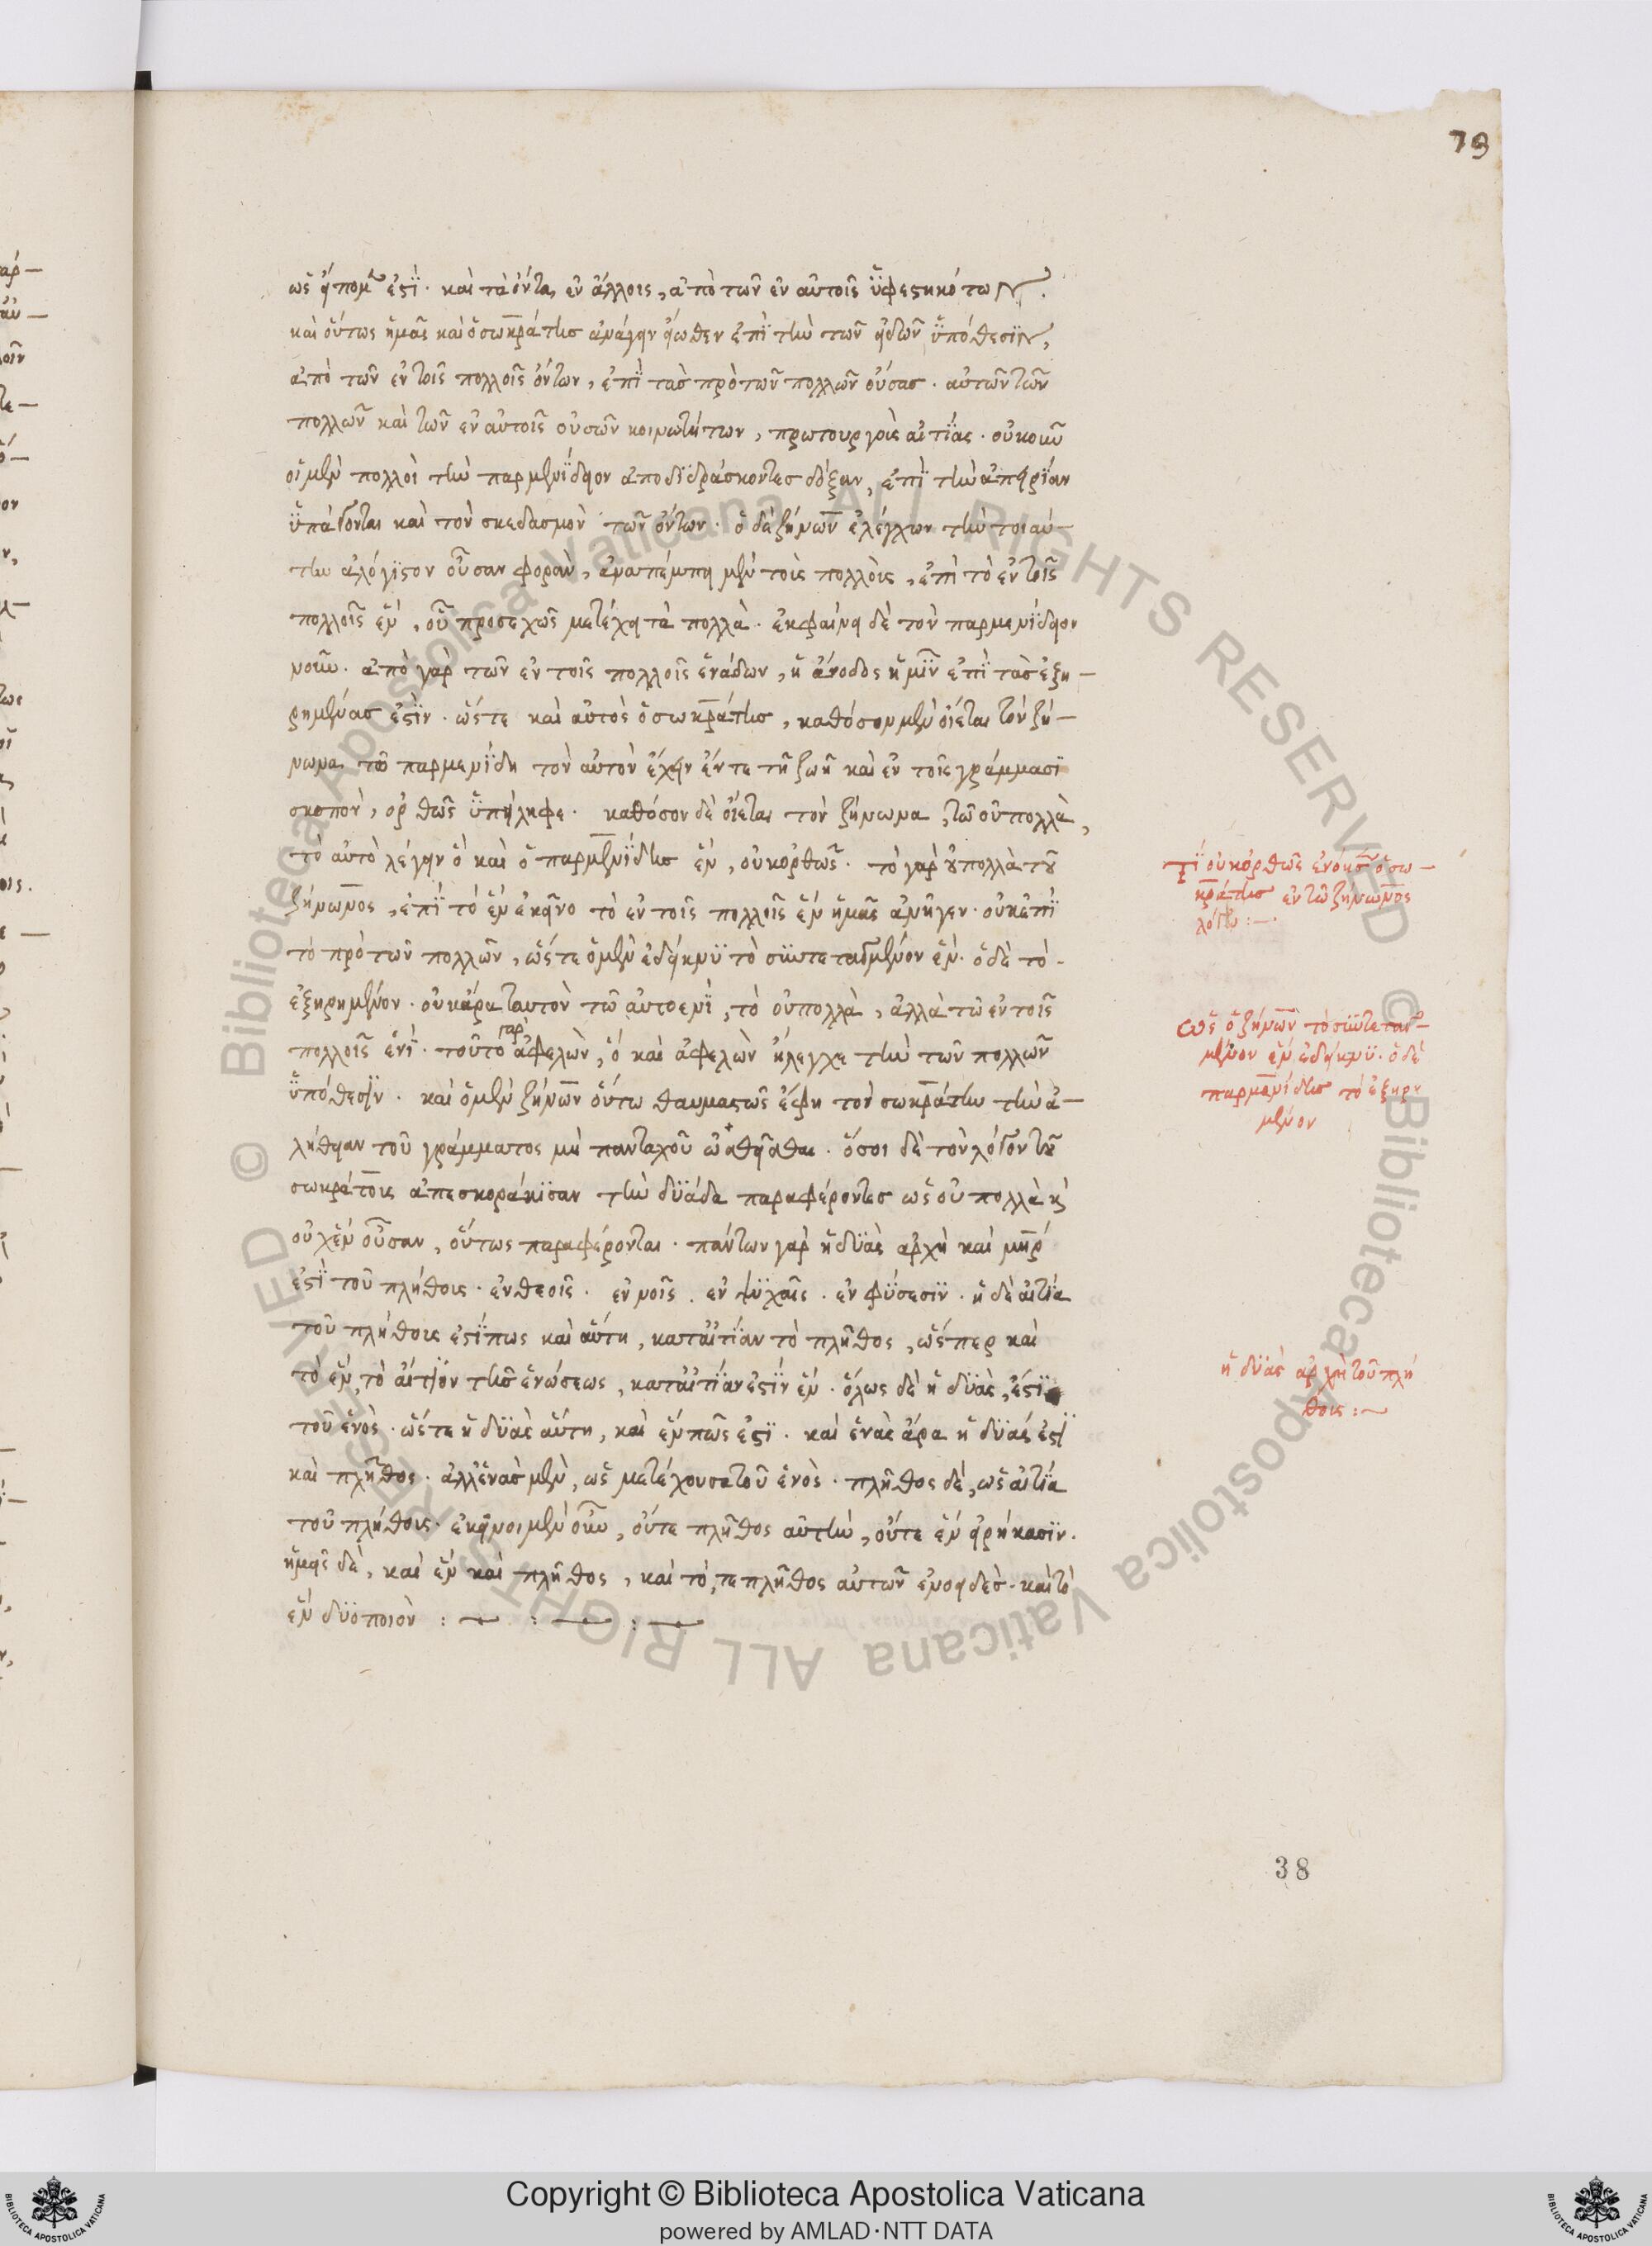 79
ὡς εἴπομεν ἐστί. καὶ τὰ ὄντα ἐν ἄλλοις, ἀπὸ τῶν ἐν αὑτοῖς ὑφεστηκότων.
καὶ οὕτως ἡμᾶς καὶ ὁ σωκράτης ἀνάγειν εἴωθεν ἐπὶ τὴν τῶν εἰδῶν ὑπόθεσιν,
ἀπὸ τῶν ἐν τοῖς πολλοῖς ὄντων, ἐπὶ τὰς πρὸ τῶν πολλῶν οὔσας. αὐτῶν τῶν
πολλῶν καὶ τῶν ἐν αὐτοῖς οὐσῶν κοινωτήτων, πρωτουργοὺς αἰτίας. οὐκοῦν
οἱ μὲν πολλοὶ τὴν παρμενίδειον ἀποδιδράσκοντες δόξαν, ἐπὶ τὴν ἀπειρίαν
ὑπάγονται καὶ τὸν σκεδασμὸν τῶν ὄντων. ὁ δὲ ζήνων ἐλέγχων τὴν τοιαύ-
την ἀλόγιστον οὖσαν φορὰν, ἀναπέμπει μὲν τοὺς πολλοὺς, ἐπὶ τὸ ἐν τοῖς
πολλοῖς ἕν, οὗ προσεχῶς μετέχει τὰ πολλὰ. ἐκφαίνει δὲ τὸν παρμενίδειον
νοῦν. ἀπὸ γὰρ τῶν ἐν τοῖς πολλοῖς ἑνάδων, ἡ ἄνοδος ἡμῖν ἐπὶ τὰς ἐξη-
ρημένας ἐστὶν. ὥστε καὶ αὐτὸς ὁ σωκράτης, καθόσον μὲν οἴεται τὸν ζή-
νωνα τῶ παρμενίδη τὸν αὐτὸν ἔχειν ἔν τε τῆ ζωῆ καὶ ἐν τοῖς γράμμασι
σκοπὸν, ὀρθῶς ὑπείληφε. καθόσον δὲ οἴεται τὸν ζήνωνα, τῶ οὐ πολλὰ,
τὸ αὐτὸ λέγειν ὃ καὶ ὁ παρμενίδης ἕν, οὐκ ὀρθῶς. τὸ γὰρ οὐ πολλὰ τοῦ
ζήνωνος, ἐπὶ τὸ ἓν ἐκεῖνο τὸ ἐν τοῖς πολλοῖς ἓν ἡμᾶς ἀνῆγεν. οὐκ ἐπὶ
τὸ πρὸ τῶν πολλῶν, ὥστε ὁ μὲν ἐδείκνυ τὸ συντεταγμένον ἕν. ὁ δὲ τὸ
ἐξηρημένον. οὐκ ἄρα ταυτὸν τῶ αὐτοενὶ, τὸ οὐ πολλὰ, ἀλλὰ τῶ ἐν τοῖς
πολλοῖς ἑνὶ. τοῦτο γὰρ ἀφελὼν, ὃ καὶ ἀφελὼν ἤλεγχε τὴν τῶν πολλῶν
ὑπόθεσιν. καὶ ὁ μὲν ζήνων οὕτω θαυμαστῶς ἔφη τὸν σωκράτην τὴν ἀ-
λήθειαν τοῦ γράμματος μὴ πανταχοῦ ᾐσθῆσθαι. ὅσοι δὲ τὸν λόγον τοῦ
σωκράτους ἀπεσκοράκισαν τὴν δυάδα παραφέροντες ὡς οὐ πολλὰ κ
οὐχ ἓν οὖσαν, οὕτως παραφέρονται. πάντων γὰρ ἡ δυὰς ἀρχὴ καὶ μήτηρ
ἐστὶ τοῦ πλήθους. ἐν θεοῖς. ἐν νοῖς. ἐν ψυχαῖς. ἐν φύσεσιν. ἡ δὲ αἰτία
τοῦ πλήθους ἐστί πως καὶ αὕτη, κατ' αἰτίαν τὸ πλῆθος, ὥσπερ καὶ
τὸ ἕν, τὸ αἴτιον τῆς ἑνώσεως, κατ' αἰτίαν ἐστὶν ἕν. ὅλως δὲ ἡ δυὰς, ἐστὶ
τοῦ ἑνὸς. ὥστε ἡ δυὰς αὕτη, καὶ ἕν πῶς ἐστι. καὶ ἑνὰς ἄρα ἡ δυάς ἐστι
καὶ πλῆθος. ἀλλ' ἑνὰς μὲν, ὡς μετέχουσα τοῦ ἑνὸς. πλῆθος δὲ, ὡς αἰτία
τοῦ πλήθους. ἐκεῖνοι μὲν οὖν, οὔτε πλῆθος αὐτὴν, οὔτε ἓν εἰρήκασιν.
ἡμεῖς δὲ, καὶ ἓν καὶ πλῆθος, καὶ τό, τε πλῆθος αὐτῶν ἑνοειδὲς. καὶ τὸ
ἓν δυοποιὸν :
Τί οὐκ ὀρθῶς ἐνόησεν ὁ σω-
κράτης ἐν τῶ ζήνωνος
λόγω :
ὡς ὁ ζήνων τὸ συντεταγ-
μένον ἓν ἐδείκνυ. ὁ δὲ
παρμενίδης τὸ ἐξηρη
μένον
ἡ δυὰς ἀρχὴ τοῦ πλή
θους :
38
© Biblioteca Apostolica Vaticana ALL RIGHTS RESERVED © Biblioteca Apostolica Vaticana ALL RIGHTS RESERVED
Copyright © Biblioteca Apostolica Vaticana
powered by AMLAD·NTT DATA